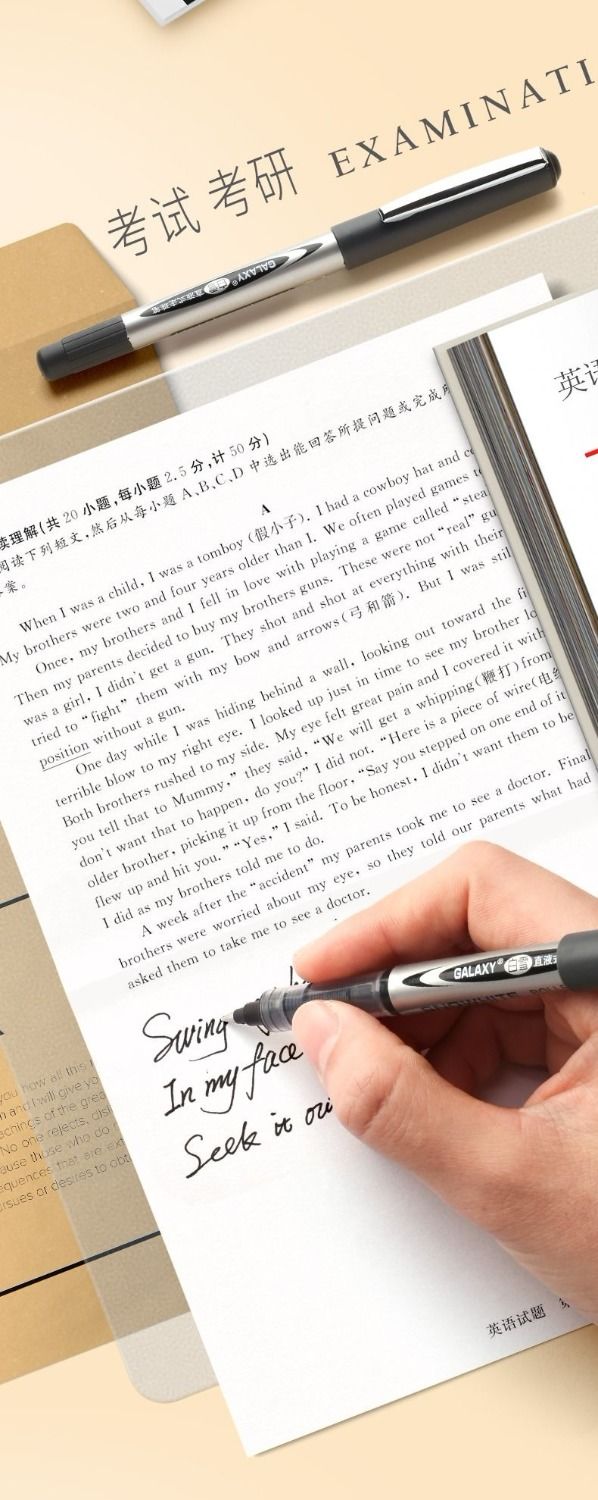 考试 考研 EXAMINATI
GALAXY® 直液式走珠笔
英语
读理解(共 20 小题,每小题 2.5 分,计 50 分)
阅读下列短文,然后从每小题 A、B、C、D 中选出能回答所提问题或完成所
答案。
A
When I was a child, I was a tomboy (假小子). I had a cowboy hat and
My brothers were two and four years older than I. We often played games
Once, my brothers and I fell in love with playing a game called “
Then my parents decided to buy my brothers guns. These were not “real”
was a girl, I didn't get a gun. They shot and shot at everything with their
tried to “fight” them with my bow and arrows (弓和箭). But I was still
position without a gun.
One day while I was hiding behind a wall, looking out toward the
terrible blow to my right eye. I looked up just in time to see my brother
Both brothers rushed to my side. My eye felt great pain and I covered it with
you tell that to Mummy,” they said, “We will get a whipping(鞭打) from
don't want that to happen, do you?” I did not. “Here is a piece of wire(电
older brother, picking it up from the floor, “Say you stepped on one end of it
flew up and hit you.” “Yes,” I said. To be honest, I didn't want them to be
I did as my brothers told me to do.
A week after the “accident” my parents took me to see a doctor. Final
brothers were worried about my eye, so they told our parents what had
asked them to take me to see a doctor.
GALAXY® 直液式
Swing
In my face
Seek it ou
you how all this
and I will give you
achings of the grea
No one rejects, disl
ause those who do
equences that are ex
rsues or desires to obt
英语试题